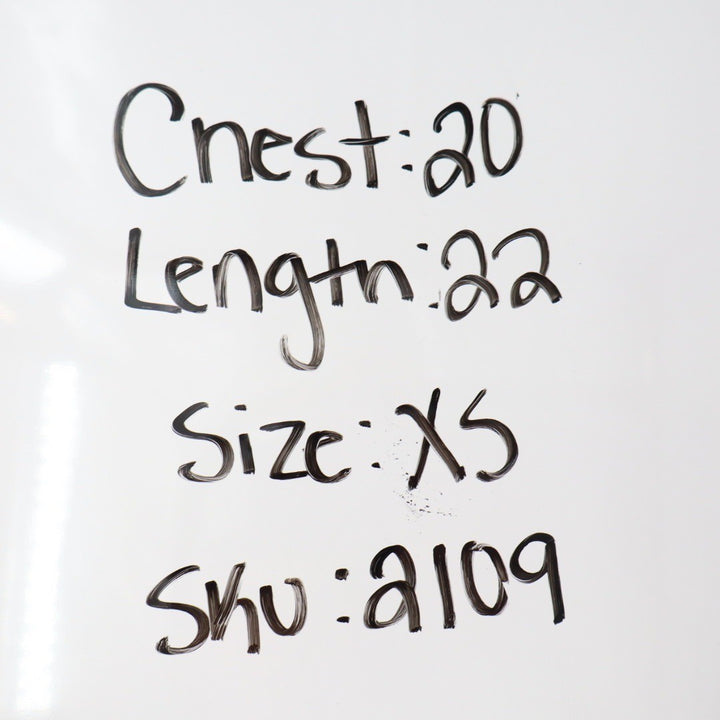 Chest:20
Length:22
Size:XS
Sku:2109